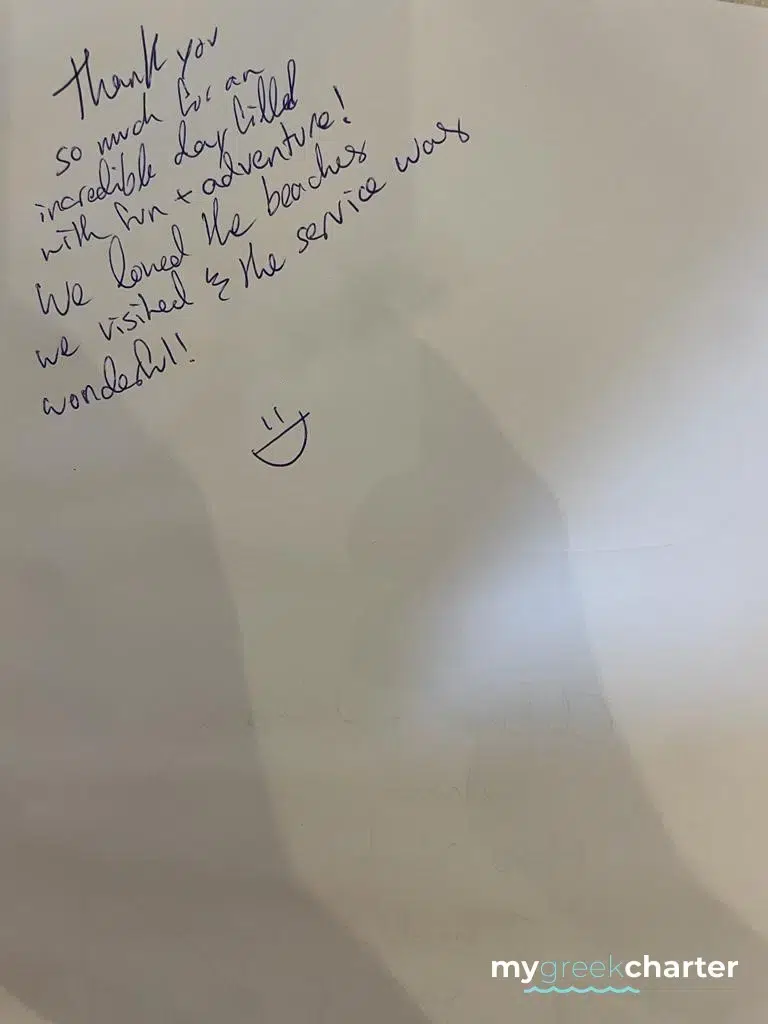 Thank you
so much for an
incredible day filled
with fun + adventure!
We loved the beaches
we visited & the service was
wonderful!
mygreekcharter